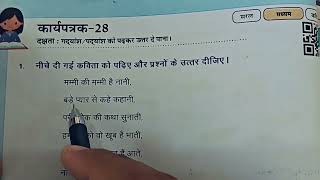 सरल मध्यम
कार्यपत्रक-28
दक्षता : गद्यांश/पद्यांश को पढ़कर उत्तर दे पाना।
1. नीचे दी गई कविता को पढ़िए और प्रश्नों के उत्तर दीजिए।
मम्मी की मम्मी है नानी,
बड़े प्यार से कहे कहानी,
की कथा सुनाती,
को वो खूब है भाती,
आते,